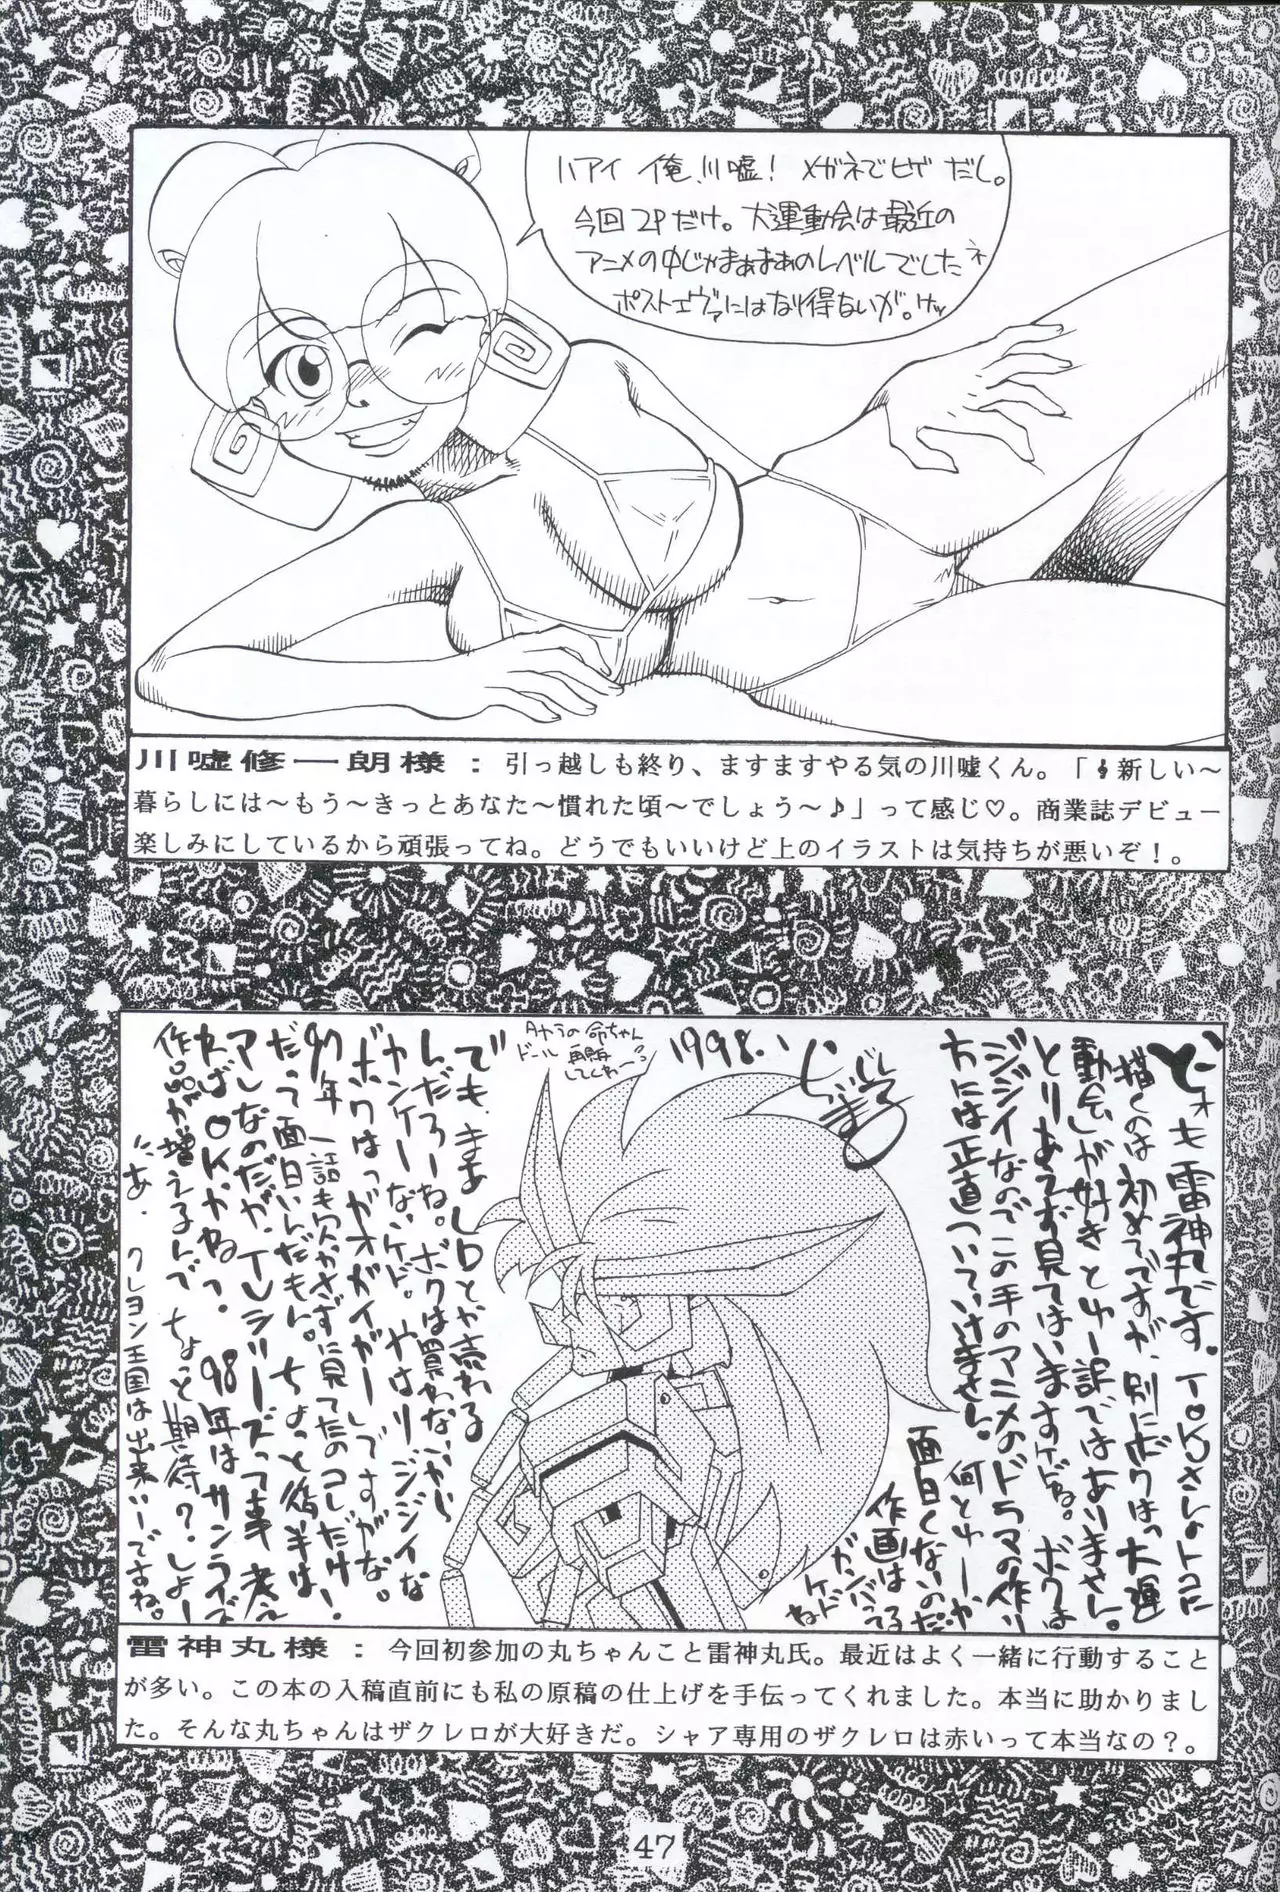 ハアイ 俺、川嘘！ メガネでヒゲ だし。
今回2Pだけ。大運動会は最近の
アニメの中じゃまぁまぁのレベルでしたネ
ポストエヴァにはなり得ないが。ケッ
川嘘修一朗様：引っ越しも終り、ますますやる気の川嘘くん。「新しい～
暮らしには～もう～きっとあなた～慣れた頃～でしょう～♪」って感じ♡。商業誌デビュー
楽しみにしているから頑張ってね。どうでもいいけど上のイラストは気持ちが悪いぞ！。
どォも雷神丸です。TOKOさんのトコに
描くのは初めてですが、別にボクはっ大運
動会が好きとゆー訳ではありません。
とりあえず見てはいますケドね。ボクは
ジジイなのでこの手のアニメのドラマの作り
方には正直ついていけません。何とゆーか
面白くないのだ
作画は
ガンバってる
ケド
ね
1998.1
タカラの命ちゃん
ドール 再販
してくれー
でも、まあ LDとか売れる
んだろーね。ボクは買わないから
カンケーないケド。やはりジジイな
ボクはっガオガイガーしですがな。
97年 一話も欠かさずに見てたのコレだけ！
だって面白いんだもん。ちょっと後半は
アレなのだが、TVシリーズって事 考え
れば OKかねっ。98年はサンライズ
作品が増えるんで ちょっと期待？しよー
あ、クレヨン王国は出来いいですね。
雷神丸様：今回初参加の丸ちゃんこと雷神丸氏。最近はよく一緒に行動すること
が多い。この本の入稿直前にも私の原稿の仕上げを手伝ってくれました。本当に助かりまし
た。そんな丸ちゃんはザクレロが大好きだ。シャア専用のザクレロは赤いって本当なの？。
47